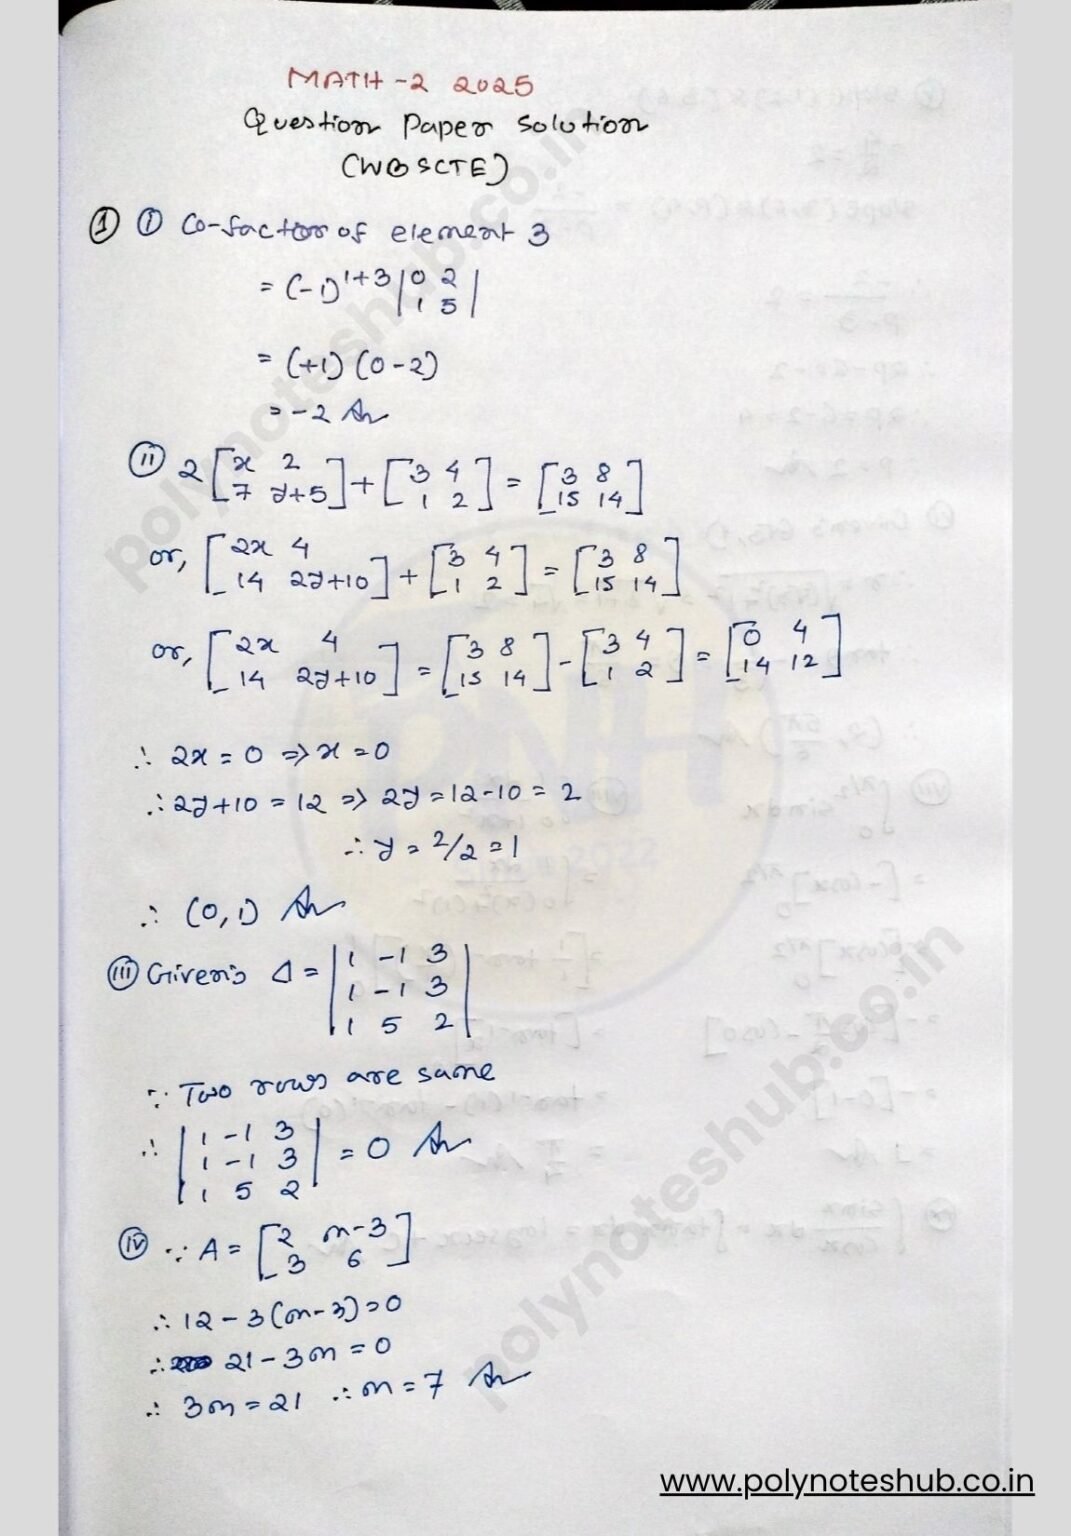 MATH-2 2025
Question Paper Solution
(WBSCTE)
① ⓘ Co-factor of element 3
= (-1)^1+3 |0 2
1 5|
= (+1) (0-2)
= -2 An
ⓘⓘ 2[x 2
7 y+5] + [3 4
1 2] = [3 8
15 14]
or, [2x 4
14 2y+10] + [3 4
1 2] = [3 8
15 14]
or, [2x 4
14 2y+10] = [3 8
15 14] - [3 4
1 2] = [0 4
14 12]
∴ 2x = 0 ⇒ x = 0
∴ 2y+10 = 12 ⇒ 2y = 12-10 = 2
∴ y = 2/2 = 1
∴ (0,1) An
ⓘⓘⓘ Given's Δ = |1 -1 3
1 -1 3
1 5 2|
∵ Two rows are same
∴ |1 -1 3
1 -1 3
1 5 2| = 0 An
ⓘⓥ ∵ A = [2 m-3
3 6]
∴ 12 - 3(m-3) = 0
∴ 21 - 3m = 0
∴ 3m = 21 ∴ m = 7 An
polynoteshub.co.in
PNH
2022
polynoteshub.co.in
www.polynoteshub.co.in